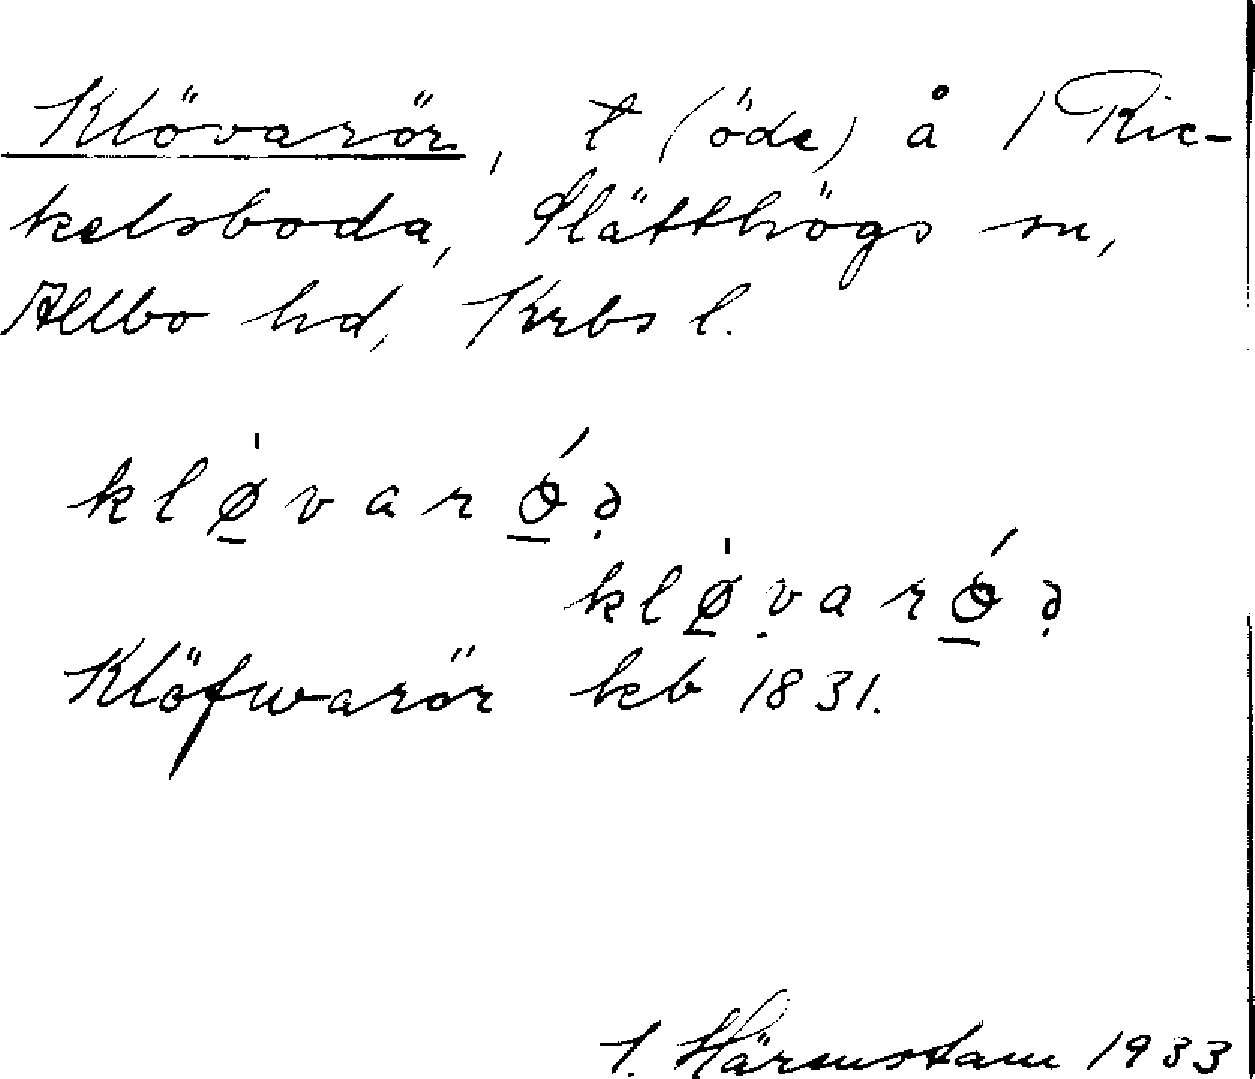 Klövarör, t (öde) å 1 Ric-
kelsboda, Slätthögs sn,
Allbo hd, Krbs l.
klø̱̍varǿ̱ə̣
klø̱̍ṿarǿ̱ə̣
Klöfwarör kb 1831.
Härenstam 1933